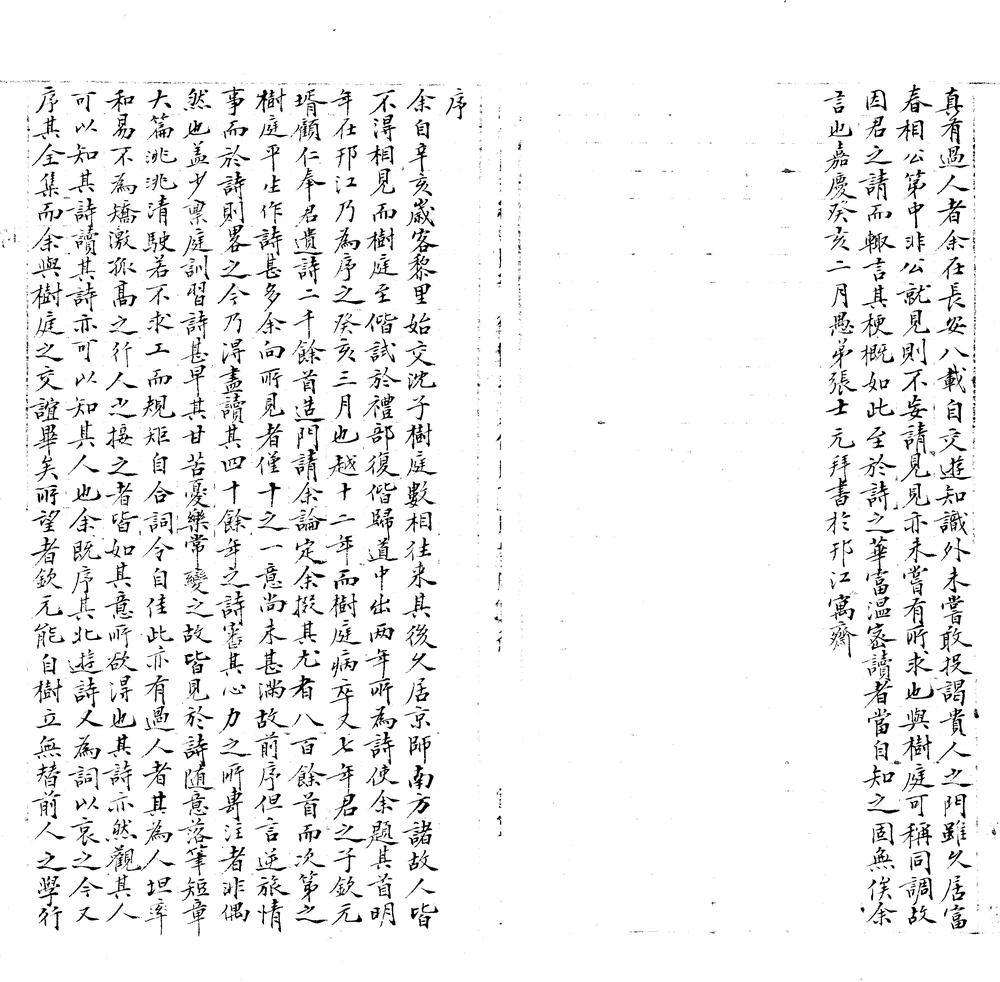 真有過人者余在長安八載自交遊知識外未嘗敢投謁貴人之門雖久居富
春相公第中非公就見則不妄請見見亦未嘗有所求也與樹庭可稱同調故
因君之請而輙言其梗概如此至於詩之華富溫密讀者當自知之固無俟余
言也嘉慶癸亥二月愚弟張士元拜書於邗江寓齋
序
余自辛亥歲客黎里始交沈子樹庭數相往来其後久居京師南方諸故人皆
不淂相見而樹庭至偕試於禮部復偕歸道中出两年所為詩使余題其首明
年在邗江乃為序之癸亥三月也越十二年而樹庭病卒又七年君之子欽元
壻顧仁奉君遺詩二千餘首造門請余論定余掇其尤者八百餘首而次第之
樹庭平生作詩甚多余向所見者僅十之一意尚未甚滿故前序但言逆旅情
事而於詩則畧之今乃淂盡讀其四十餘年之詩審其心力之所專注者非偶
然也盖少稟庭訓習詩甚早其甘苦憂樂常變之故皆見於詩隨意落筆短章
大篇洮洮清駛若不求工而規矩自合詞令自佳此亦有過人者其為人坦率
和易不為矯激孤高之行人之接之者皆如其意所欲淂也其詩亦然觀其人
可以知其詩讀其詩亦可以知其人也余既序其北遊詩又為詞以哀之今又
序其全集而余與樹庭之交誼畢矣所望者欽元能自樹立無替前人之學行